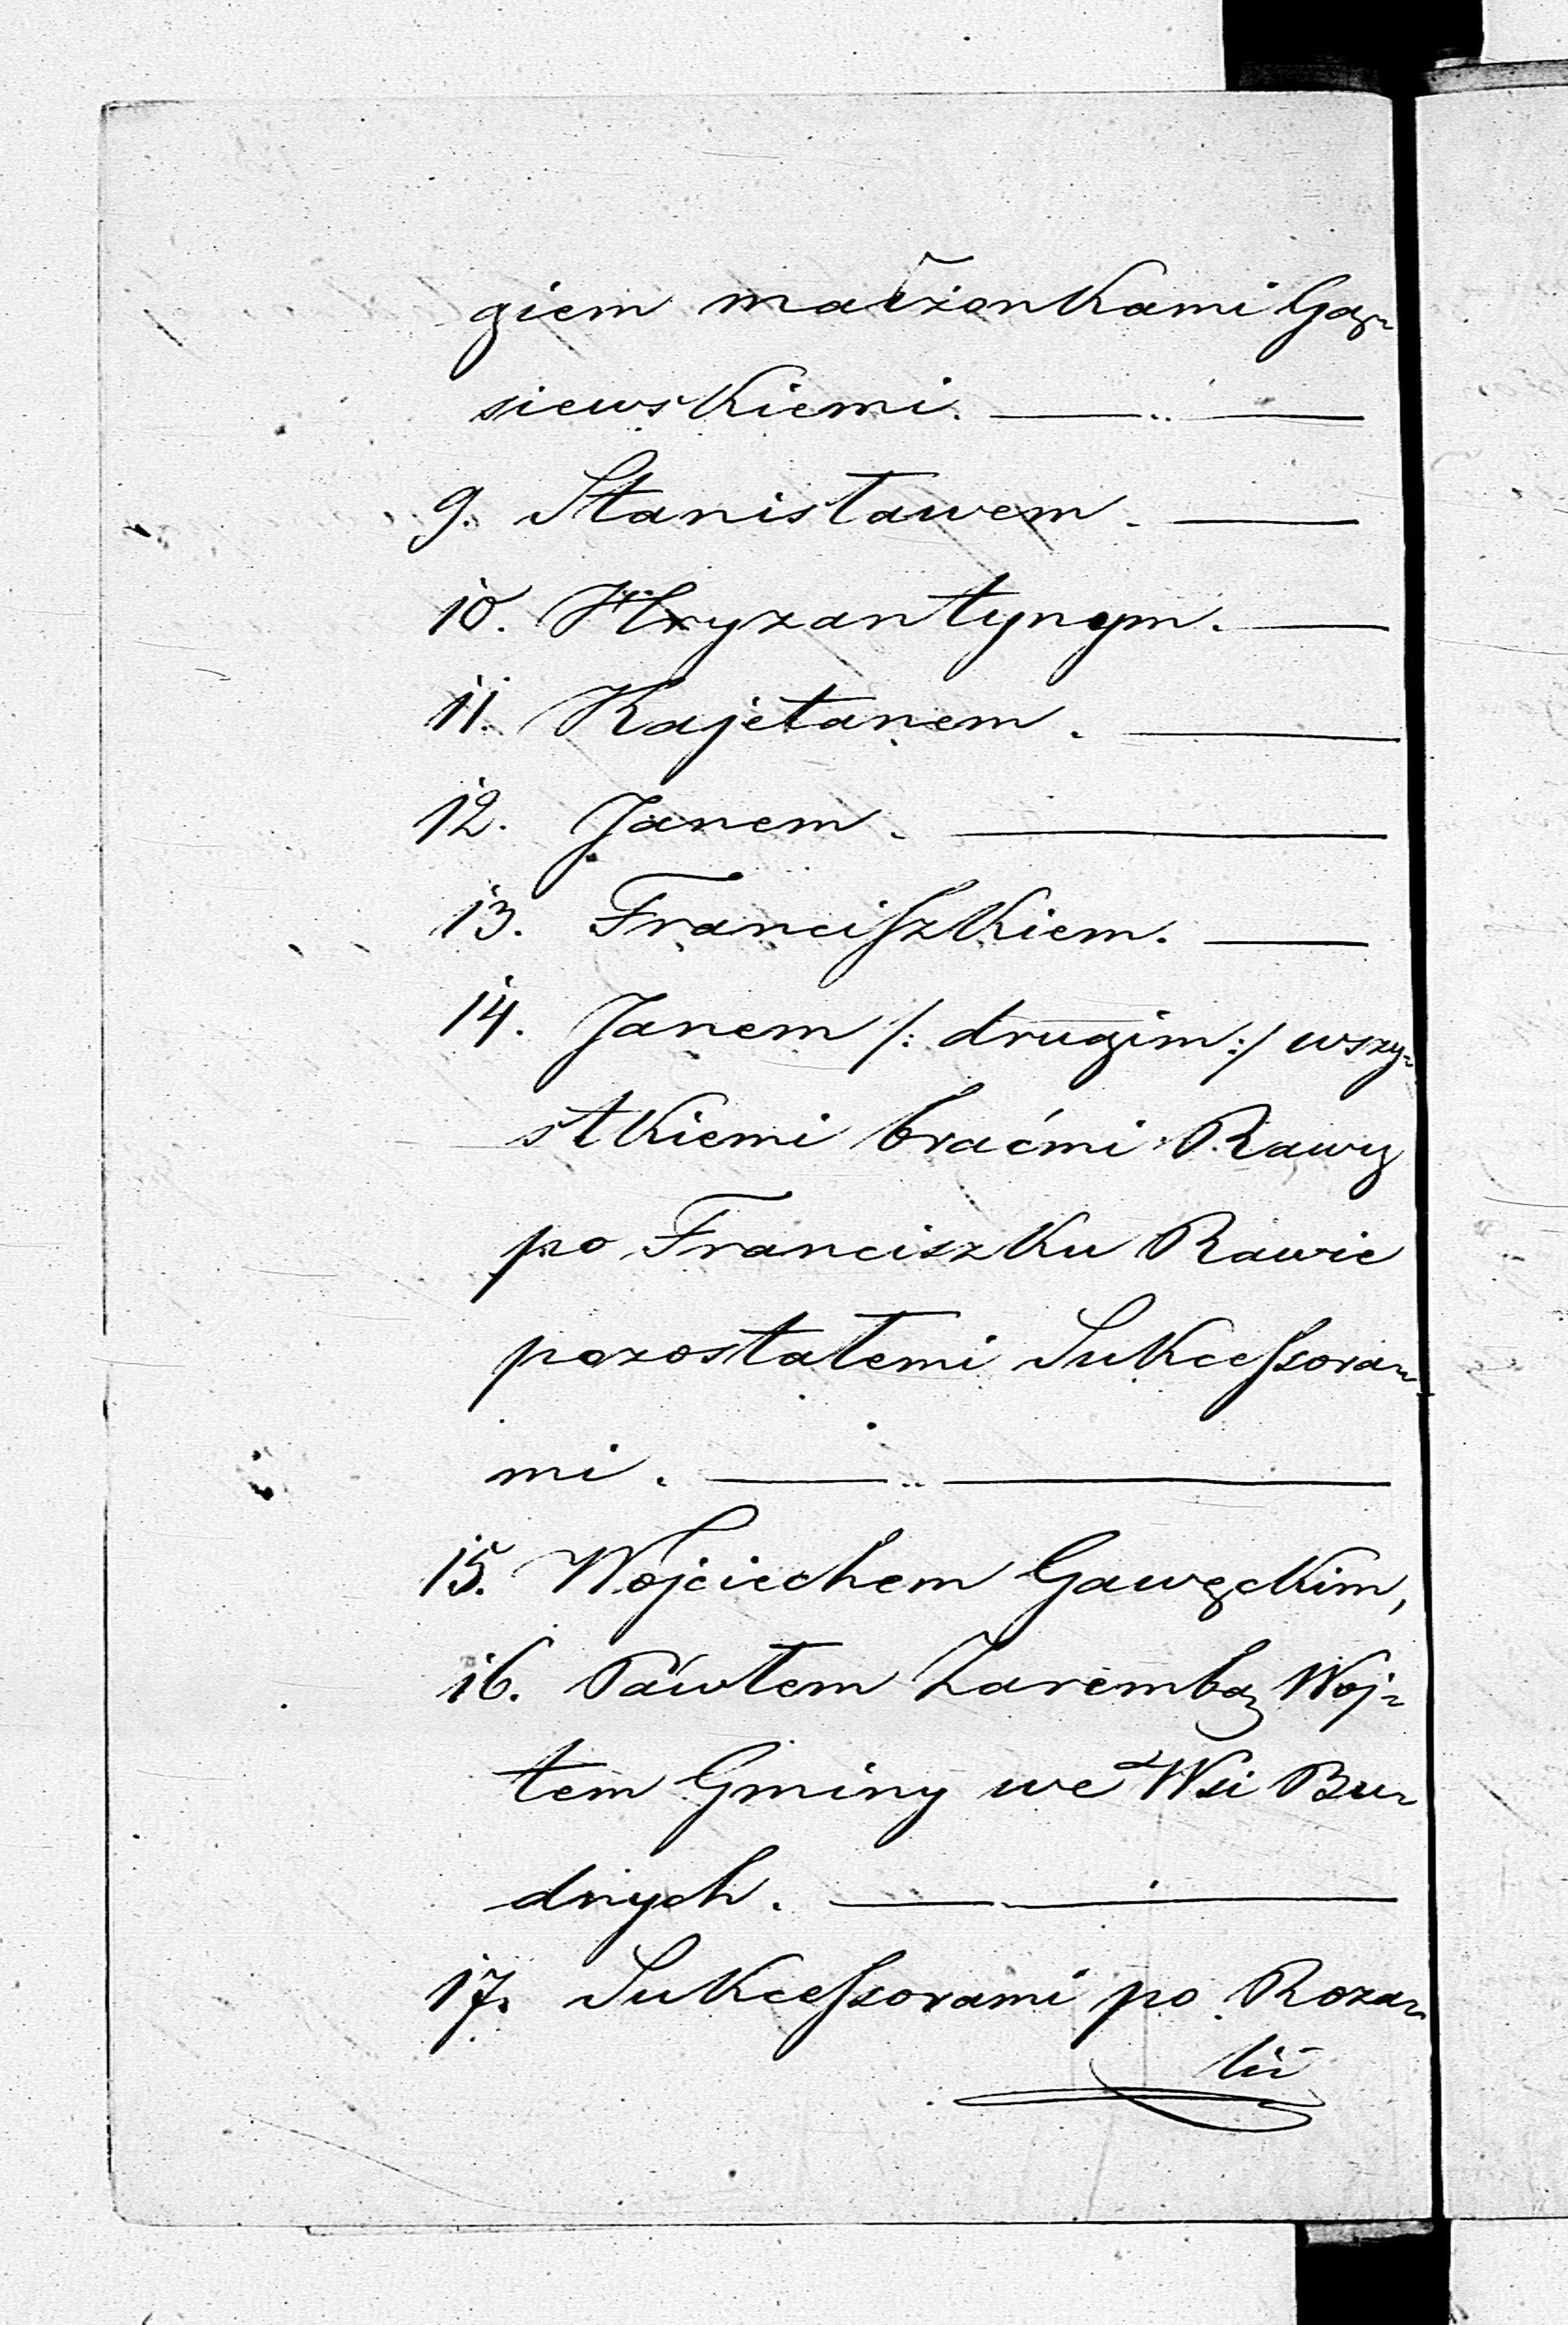 giem małżonkami Gą-
siewskiemi. — " —
9. Stanisławem. —
10. Hryzantynym. —
11. Kajetanem. —
12. Janem. —
13. Franciszkiem. —
14. Janem /: drugim :/ wszy-
stkiemi braćmi Rawy
po Franciszku Rawie
pozostałemi Sukcessora-
mi. — " —
15. Wojciechem Gawęckim,
16. Pawłem Zarembą Woj-
tem Gminy we Wsi Bu-
dnych. —
17. Sukcessorami po Roza-
lii